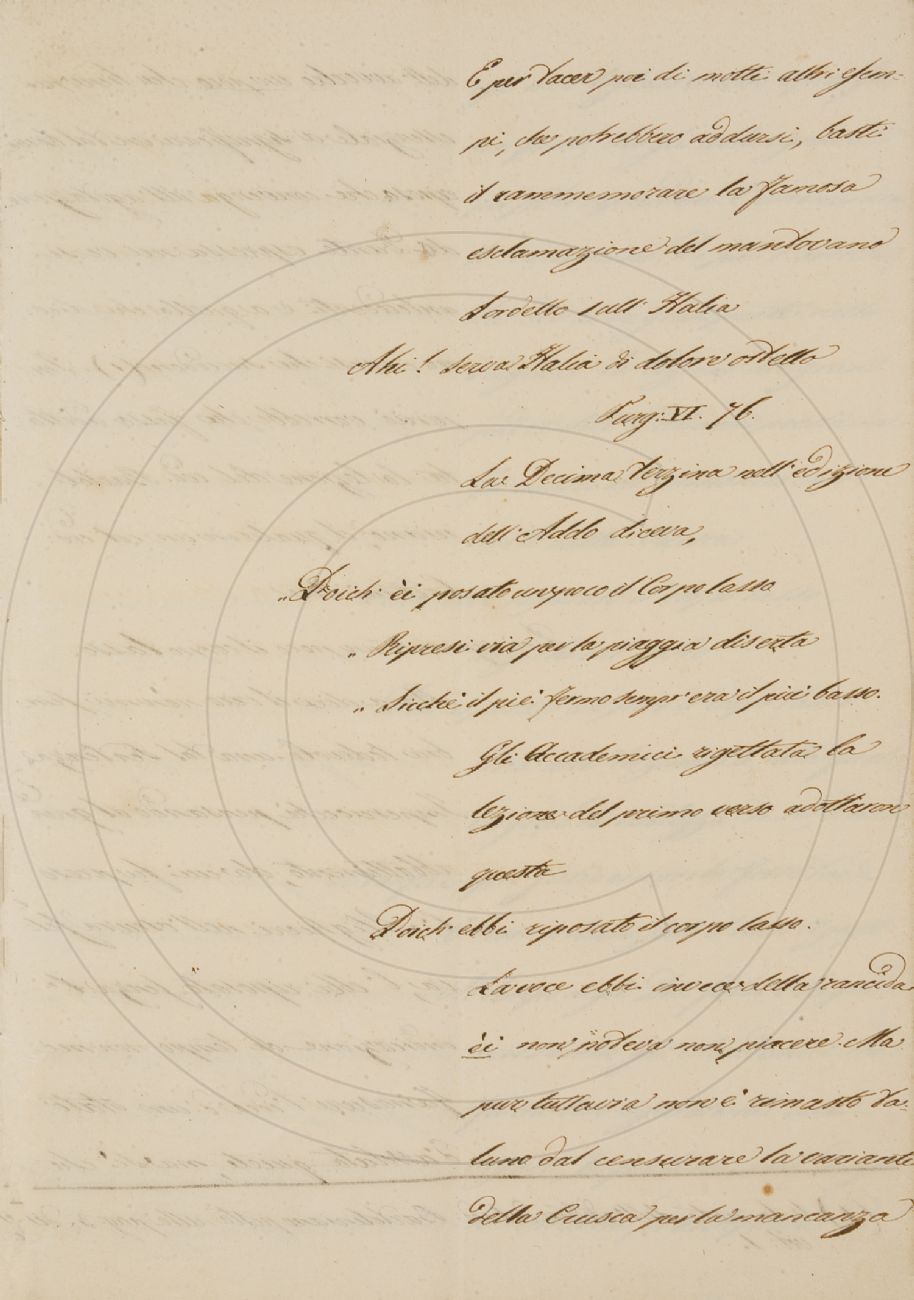 E per tacer poi di molti altri esem-
pi, che potrebbero addursi, basti
il rammemorare la famosa
esclamazione del mantovano
Sordello sull' Italia
Ahi! serva Italia di dolore ostello
Purg: VI. 76.
La Decima terzina nell' edizione
dell' Aldo diceva,
„ Poich' èi posato un poco il Corpo lasso
„ Ripresi via per la piaggia diserta
„ Sicchè il piè fermo sempr' era il più basso.
Gli Accademici rigettata la
lezione del primo verso adottaron
questa
Poich' ebbi riposato il corpo lasso.
La voce ebbi invece della rancida
èi non poteva non piacere. Ma
pure tuttavia non è rimasto ta-
luno dal censurare la variante
della Crusca per la mancanza